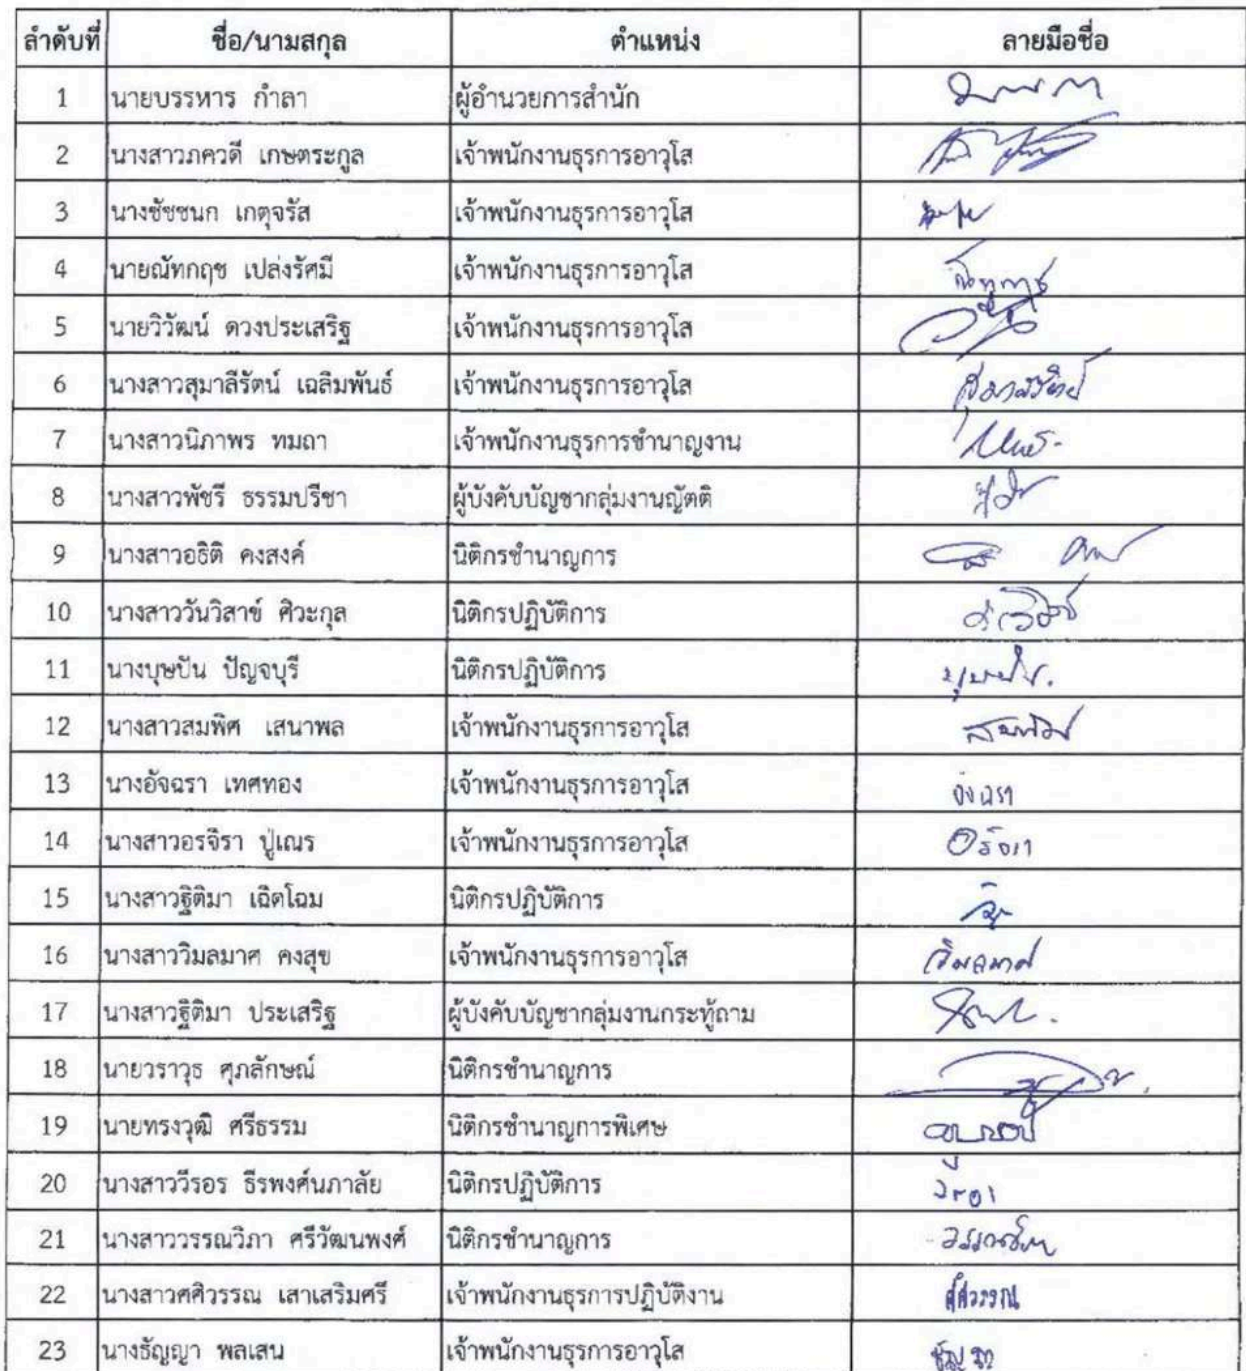 ลำดับที่ ชื่อ/นามสกุล ตำแหน่ง ลายมือชื่อ
1 นายบรรหาร กำลา ผู้อำนวยการสำนัก
2 นางสาวภควดี เกษตระกูล เจ้าพนักงานธุรการอาวุโส
3 นางชัชชนก เกตุจรัส เจ้าพนักงานธุรการอาวุโส
4 นายณัทกฤช เปล่งรัศมี เจ้าพนักงานธุรการอาวุโส
5 นายวิวัฒน์ ดวงประเสริฐ เจ้าพนักงานธุรการอาวุโส
6 นางสาวสุมาลีรัตน์ เฉลิมพันธ์ เจ้าพนักงานธุรการอาวุโส
7 นางสาวนิภาพร ทมถา เจ้าพนักงานธุรการชำนาญงาน
8 นางสาวพัชรี ธรรมปรีชา ผู้บังคับบัญชากลุ่มงานญัตติ
9 นางสาวอธิติ คงสงค์ นิติกรชำนาญการ
10 นางสาววันวิสาข์ ศิวะกุล นิติกรปฏิบัติการ
11 นางบุษบัน ปัญจบุรี นิติกรปฏิบัติการ
12 นางสาวสมพิศ เสนาพล เจ้าพนักงานธุรการอาวุโส
13 นางอัจฉรา เทศทอง เจ้าพนักงานธุรการอาวุโส อัจฉรา
14 นางสาวอรจิรา ปู่เณร เจ้าพนักงานธุรการอาวุโส
15 นางสาวฐิติมา เฉิดโฉม นิติกรปฏิบัติการ
16 นางสาววิมลมาศ คงสุข เจ้าพนักงานธุรการอาวุโส วิมลมาศ
17 นางสาวฐิติมา ประเสริฐ ผู้บังคับบัญชากลุ่มงานกระทู้ถาม
18 นายวราวุธ ศุภลักษณ์ นิติกรชำนาญการ
19 นายทรงวุฒิ ศรีธรรม นิติกรชำนาญการพิเศษ
20 นางสาววีรอร ธีรพงศ์นภาลัย นิติกรปฏิบัติการ
21 นางสาววรรณวิภา ศรีวัฒนพงศ์ นิติกรชำนาญการ
22 นางสาวศศิวรรณ เสาเสริมศรี เจ้าพนักงานธุรการปฏิบัติงาน ศศิวรรณ
23 นางธัญญา พลเสน เจ้าพนักงานธุรการอาวุโส